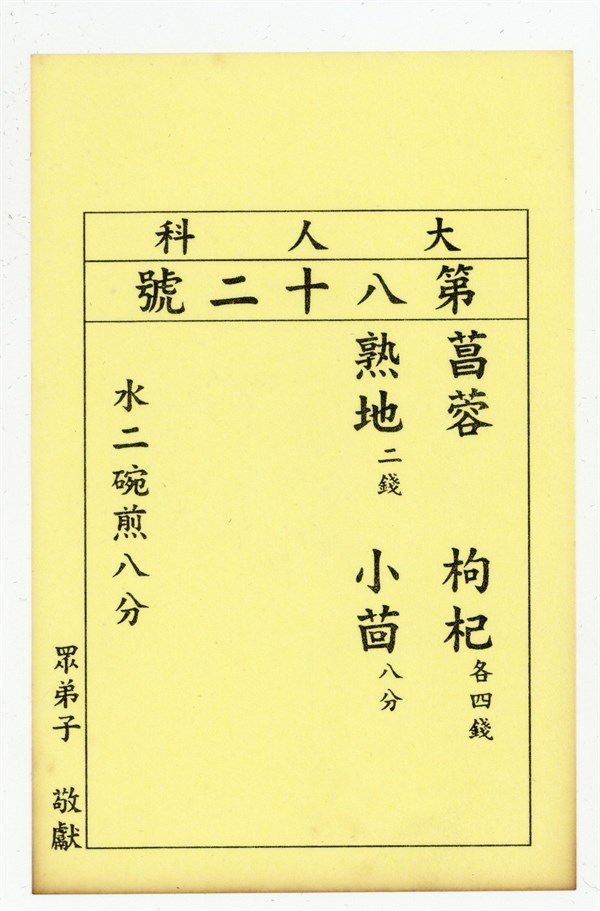 大人科
第八十二號
菖蓉 枸杞各四錢
熟地二錢 小茴八分
水二碗煎八分
眾弟子 敬獻